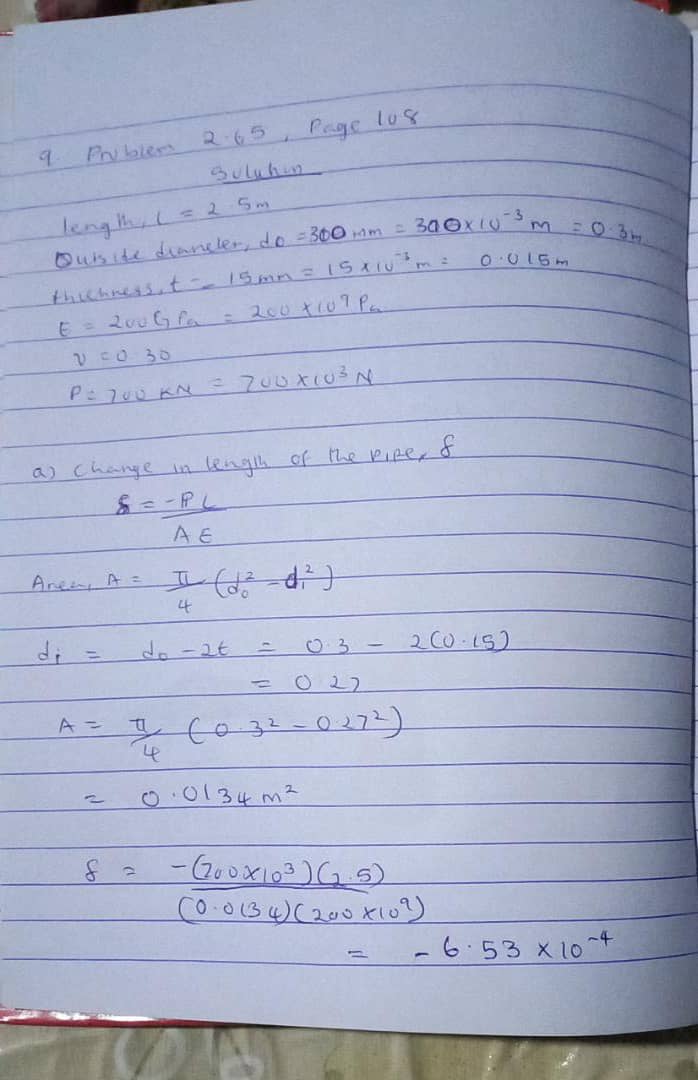 9. Problem 2.65, Page 108
Solution
length, L = 2.5m
Outside diameter, do = 300 mm = 300 x 10⁻³ m = 0.3m
thickness, t = 15mm = 15 x 10⁻³ m = 0.015m
E = 200 GPa = 200 x 10⁹ Pa
ν = 0.30
P = 700 KN = 700 x 10³ N
a) Change in length of the pipe, δ
δ = -PL
AE
Area, A = π/4 (do² - di²)
di = do - 2t = 0.3 - 2(0.15)
= 0.27
A = π/4 (0.3² - 0.27²)
= 0.0134 m²
δ = -(700 x 10³)(2.5)
(0.0134)(200 x 10⁹)
= -6.53 x 10⁻⁴